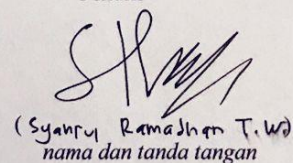 (Syahrul Ramadhan T.W.)
nama dan tanda tangan